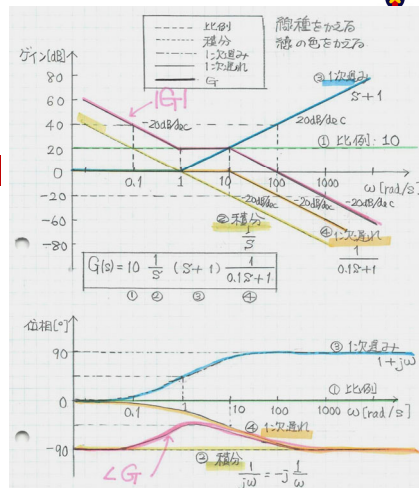 比例
積分
1次進み
1次遅れ
G
線種をかえる
線の色をかえる
ゲイン[dB]
80
60
40
20
0
-20
-60
-80
|G|
-20dB/dec
20dB/dec
③1次進み
S+1
①比例:10
0.1
1
10
100
1000
ω[rad/s]
-20dB/dec
-20dB/dec
-20dB/dec
②積分
1/S
④1次遅れ
1/0.1S+1
G(s)=10 1/S (S+1) 1/0.1S+1
① ② ③ ④
位相[°]
90
0
-90
③1次進み
1+jω
①比例
0.1
1
10
100
1000
ω[rad/s]
④1次遅れ
∠G
②積分
1/jω=-j1/ω